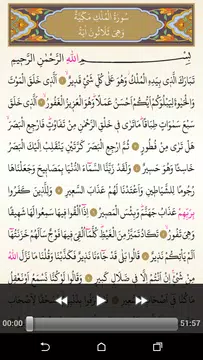 سُورَةُ الْمُلْكِ مَكِّيَّةٌ
وَهِيَ ثَلَاثُونَ اٰيَةً
بِسْمِ اللّٰهِ الرَّحْمٰنِ الرَّحِيمِ
تَبَارَكَ الَّذِي بِيَدِهِ الْمُلْكُ وَهُوَ عَلٰى كُلِّ شَيْءٍ قَدِيرٌ ۝ اَلَّذِي خَلَقَ الْمَوْتَ
وَالْحَيٰوةَ لِيَبْلُوَكُمْ اَيُّكُمْ اَحْسَنُ عَمَلًا وَهُوَ الْعَزِيزُ الْغَفُورُ ۝ اَلَّذِي خَلَقَ
سَبْعَ سَمٰوَاتٍ طِبَاقًا مَا تَرٰى فِي خَلْقِ الرَّحْمٰنِ مِنْ تَفَاوُتٍ فَارْجِعِ الْبَصَرَ
هَلْ تَرٰى مِنْ فُطُورٍ ۝ ثُمَّ ارْجِعِ الْبَصَرَ كَرَّتَيْنِ يَنْقَلِبْ اِلَيْكَ الْبَصَرُ
خَاسِئًا وَهُوَ حَسِيرٌ ۝ وَلَقَدْ زَيَّنَّا السَّمَاءَ الدُّنْيَا بِمَصَابِيحَ وَجَعَلْنَاهَا
رُجُومًا لِلشَّيَاطِينِ وَاَعْتَدْنَا لَهُمْ عَذَابَ السَّعِيرِ ۝ وَلِلَّذِينَ كَفَرُوا
بِرَبِّهِمْ عَذَابُ جَهَنَّمَ وَبِئْسَ الْمَصِيرُ ۝ اِذَا اُلْقُوا فِيهَا سَمِعُوا لَهَا شَهِيقًا
وَهِيَ تَفُورُ ۝ تَكَادُ تَمَيَّزُ مِنَ الْغَيْظِ كُلَّمَا اُلْقِيَ فِيهَا فَوْجٌ سَاَلَهُمْ خَزَنَتُهَا
اَلَمْ يَأْتِكُمْ نَذِيرٌ ۝ قَالُوا بَلٰى قَدْ جَاءَنَا نَذِيرٌ فَكَذَّبْنَا وَقُلْنَا مَا نَزَّلَ اللّٰهُ
مِنْ شَيْءٍ اِنْ اَنْتُمْ اِلَّا فِي ضَلَالٍ كَبِيرٍ ۝ وَقَالُوا لَوْ كُنَّا نَسْمَعُ اَوْ نَعْقِلُ
00:00
51:57